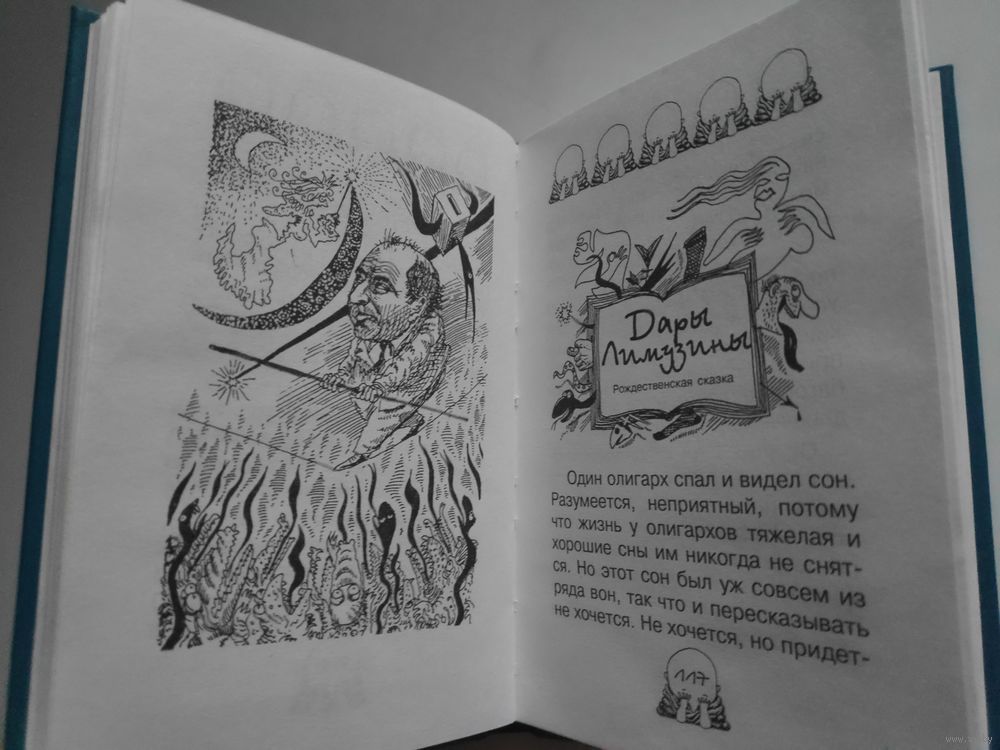 Дары
Лимузины
Рождественская сказка
Один олигарх спал и видел сон.
Разумеется, неприятный, потому
что жизнь у олигархов тяжелая и
хорошие сны им никогда не снят-
ся. Но этот сон был уж совсем из
ряда вон, так что и пересказывать
не хочется. Не хочется, но придет-
117